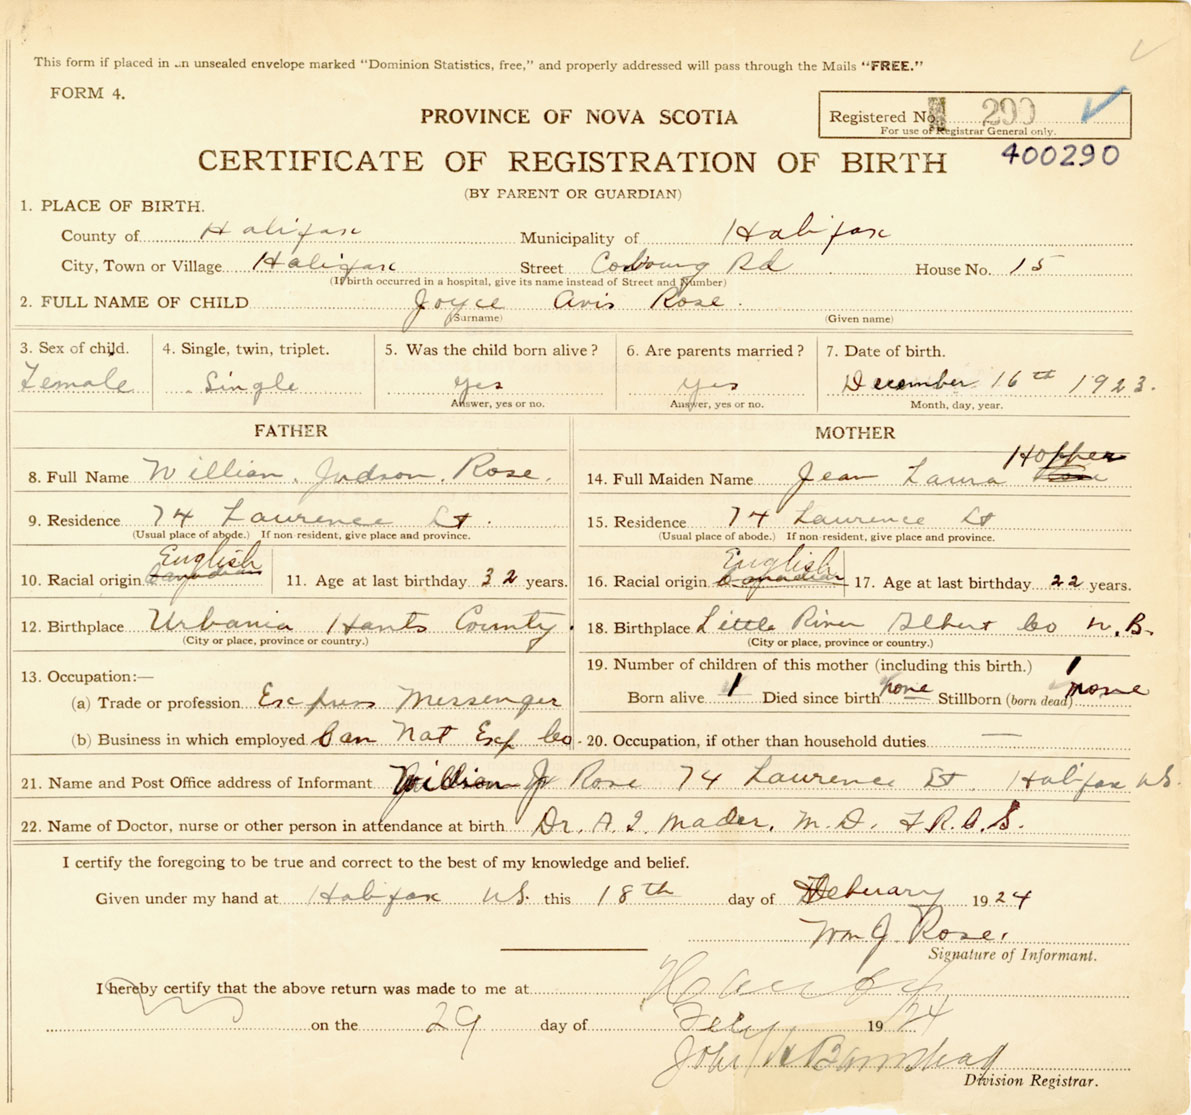 This form if placed in an unsealed envelope marked "Dominion Statistics, free," and properly addressed will pass through the Mails "FREE."
FORM 4.
PROVINCE OF NOVA SCOTIA
Registered No. 290
For use of Registrar General only.
CERTIFICATE OF REGISTRATION OF BIRTH 400290
(BY PARENT OR GUARDIAN)
1. PLACE OF BIRTH.
County of Halifax Municipality of Halifax
City, Town or Village Halifax Street Cobourg Rd House No. 15
(If birth occurred in a hospital, give its name instead of Street and Number)
2. FULL NAME OF CHILD Joyce Avis Rose.
(Surname) (Given name)
3. Sex of child. 4. Single, twin, triplet. 5. Was the child born alive? 6. Are parents married? 7. Date of birth.
Female Single yes yes December 16th 1923.
Answer, yes or no. Answer, yes or no. Month, day, year.
FATHER MOTHER
8. Full Name William. Judson. Rose. 14. Full Maiden Name Jean Laura Hopper
9. Residence 74 Laurence St. 15. Residence 74 Laurence St
(Usual place of abode.) If non-resident, give place and province. (Usual place of abode.) If non-resident, give place and province.
10. Racial origin Canadian English 11. Age at last birthday 32 years. 16. Racial origin Canadian English 17. Age at last birthday 22 years.
12. Birthplace Urbania Hants County. 18. Birthplace Little River Albert Co N.B.
(City or place, province or country.) (City or place, province or country.)
13. Occupation:— 19. Number of children of this mother (including this birth.) 1
(a) Trade or profession Express Messenger Born alive 1 Died since birth none Stillborn (born dead) none
(b) Business in which employed Can Nat Exp Co. 20. Occupation, if other than household duties —
21. Name and Post Office address of Informant William J Rose 74 Laurence St. Halifax NS.
22. Name of Doctor, nurse or other person in attendance at birth Dr. A. I. Mader. M.D. F.R.C.S.
I certify the foregoing to be true and correct to the best of my knowledge and belief.
Given under my hand at Halifax NS. this 18th day of February 1924
Wm J. Rose.
Signature of Informant.
I hereby certify that the above return was made to me at Halifax
on the 29 day of Feby 1924
John
Division Registrar.